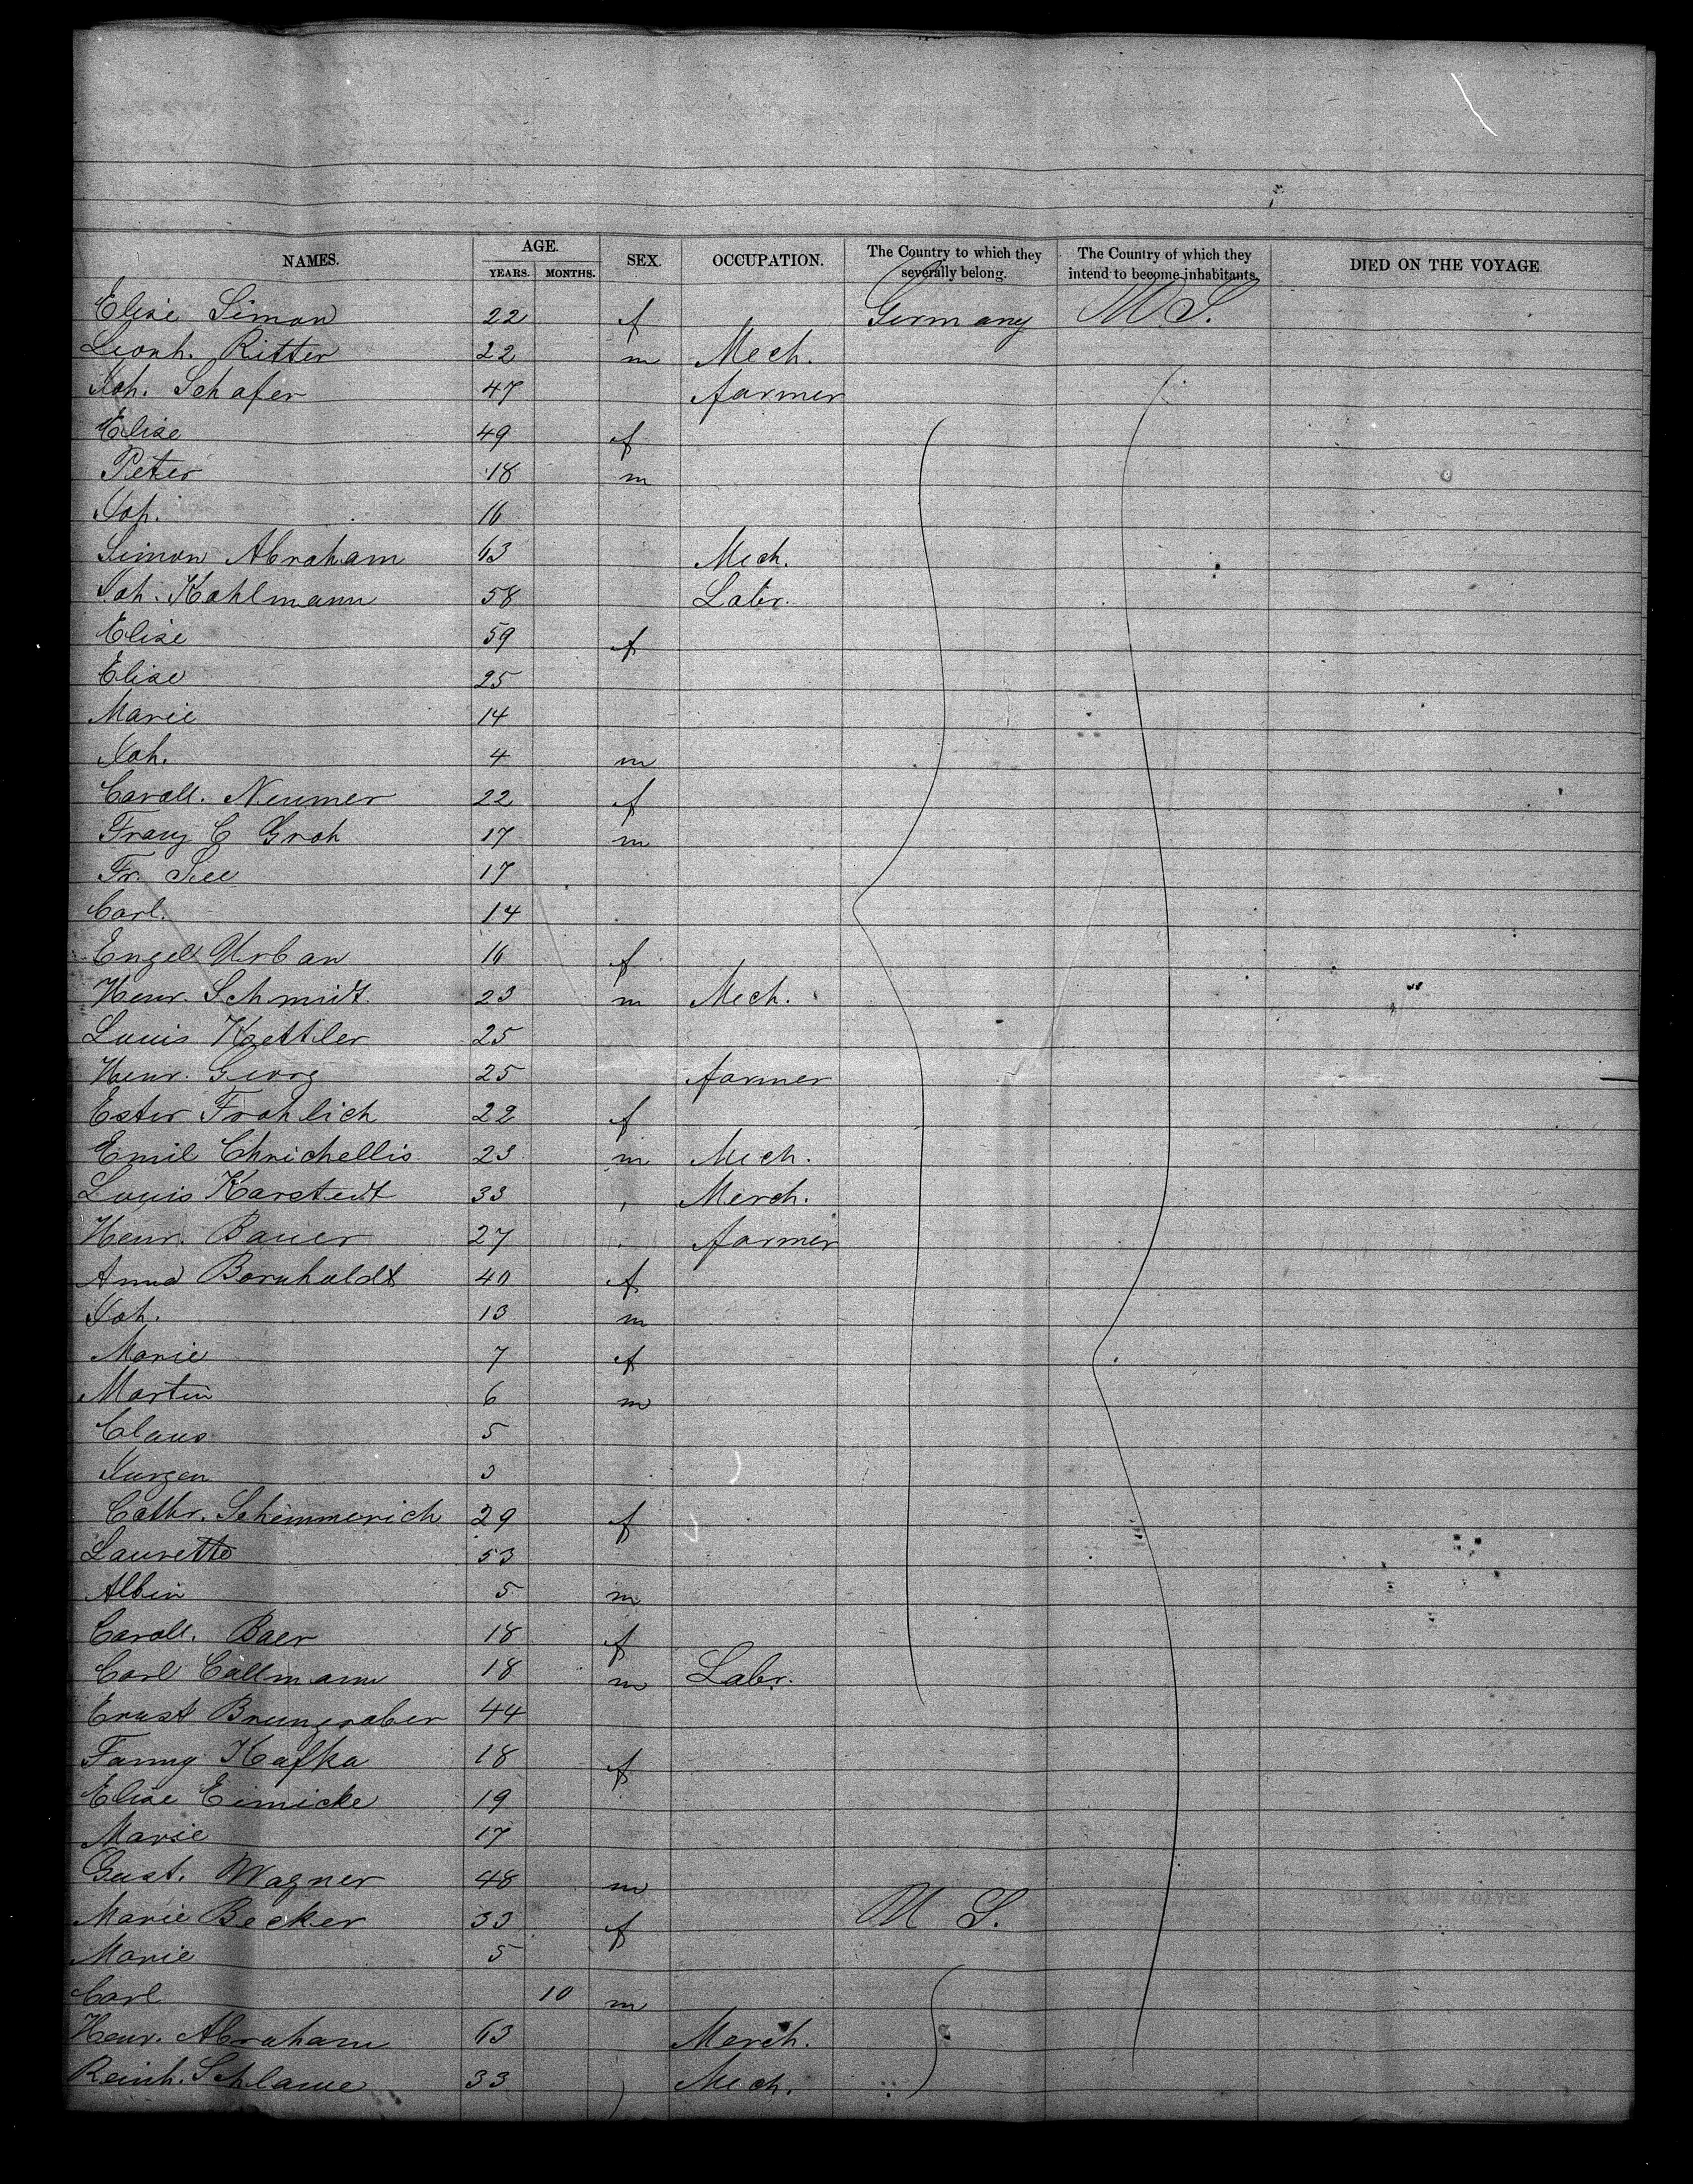 NAMES. AGE. YEARS. MONTHS. SEX. OCCUPATION. The Country to which they severally belong. The Country of which they intend to become inhabitants. DIED ON THE VOYAGE
Elise Simon 22 f Germany U.S.
Leonh. Ritter 22 m Mech.
Joh. Schafer 47 farmer
Elise 49 f
Peter 18 m
Joh. 16
Simon Abraham 63 Mech.
Joh. Kohlmann 58 Labr.
Elise 59 f
Elise 25
Marie 14
Joh. 4 m
Caroll. Neumer 22 f
Franz C Groh 17 m
Fr. See 17
Carl. 14
Engel Urban 16 f
Henr. Schmidt 23 m Mech.
Louis Kettler 25
Henr. Georg 25 farmer
Ester Frohlich 22 f
Emil Chrichellis 23 m Mech.
Louis Karstedt 33 Merch.
Henr. Bauer 27 farmer
Anna Bornholdt 40 f
Joh. 13 m
Marie 7 f
Martin 6 m
Claus 5
Jurgen 3
Cathr. Schemmerich 29 f
Laurette 53
Albin 5 m
Caroll. Baer 18 f
Carl Callmann 18 m Labr.
Ernst Brungraber 44
Fanny Kafka 18 f
Elise Eimicke 19
Marie 17
Gust. Wagner 48 m
Marie Becker 33 f U S.
Marie 5
Carl 10 m
Henr. Abraham 63 Merch.
Reinh. Schlaue 33 Mech.